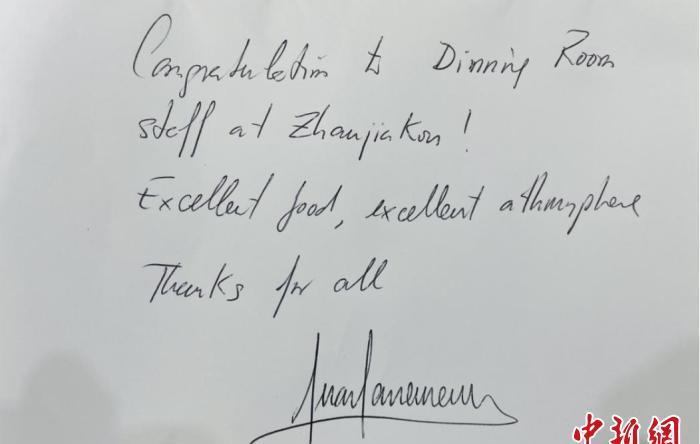 Congratulation to Dinning Room
staff at Zhanjiakou!
Excellent food, excellent athmosphere
Thanks for all
中新網